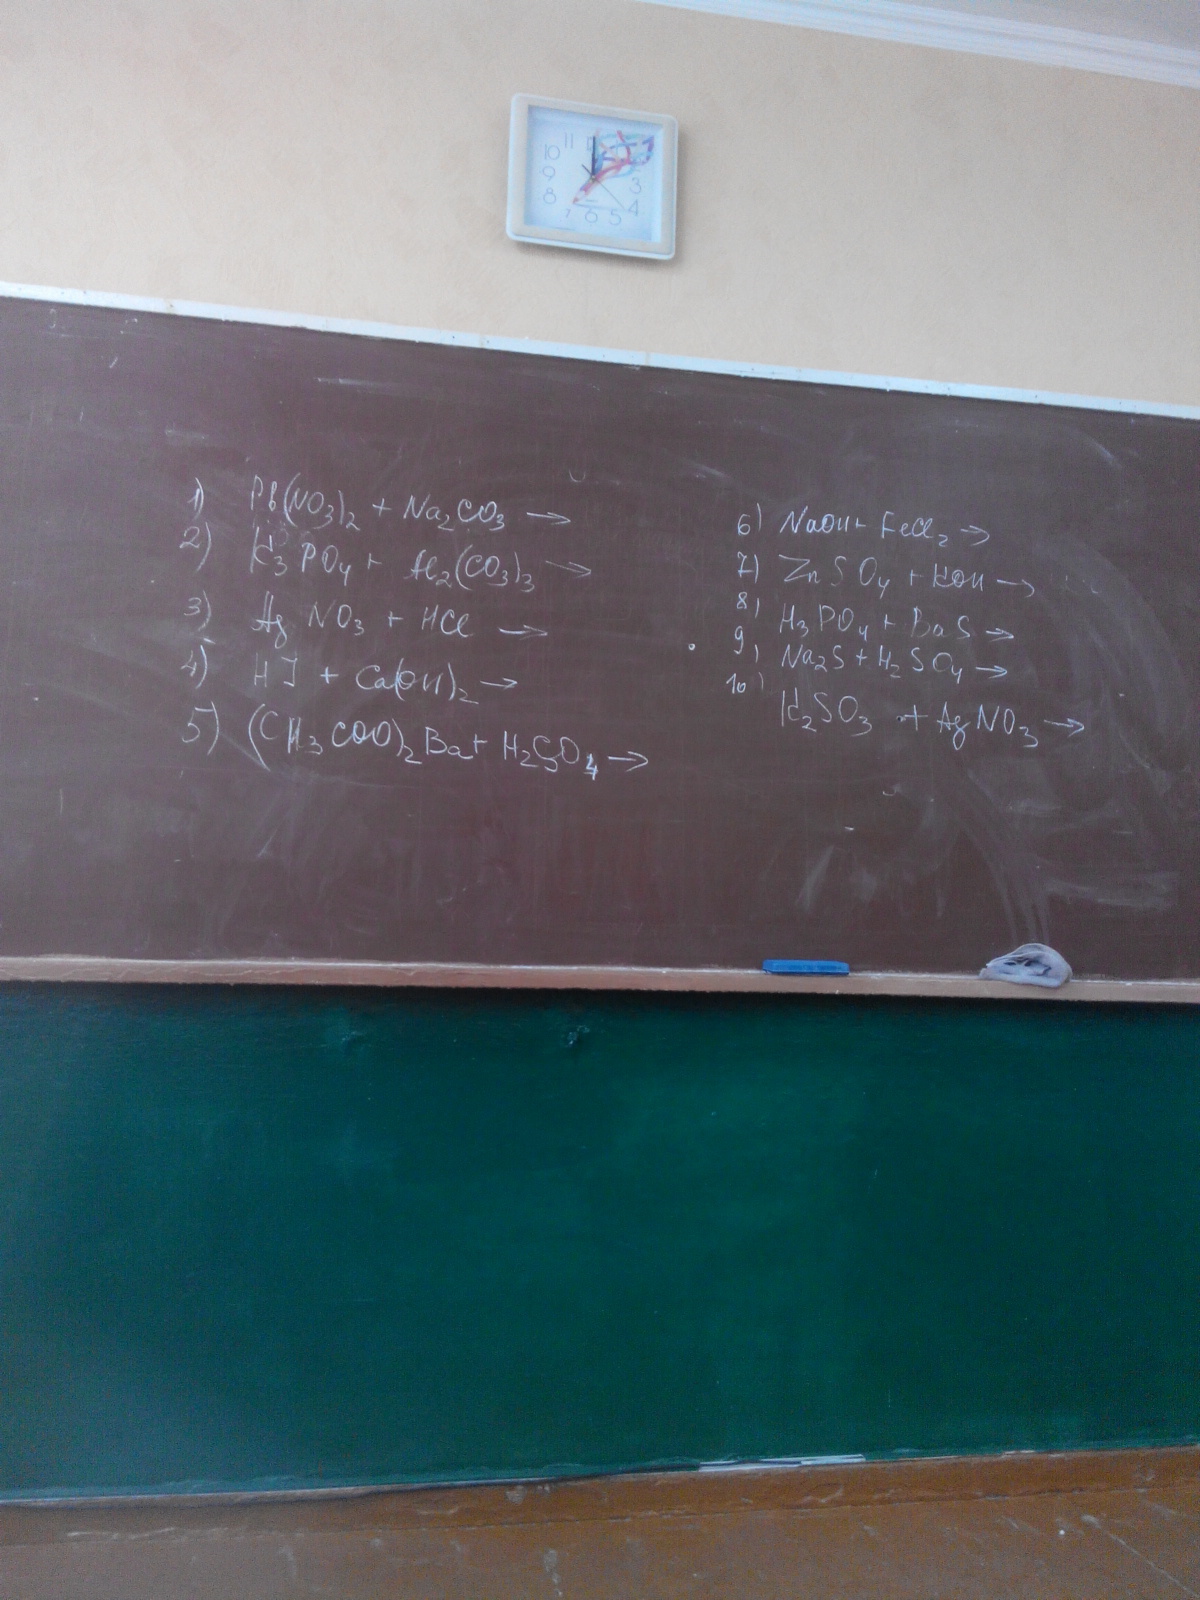 11
10
9
8
7
6
5
4
3
1) Pb(NO₃)₂ + Na₂CO₃ →
2) K₃PO₄ + Al₂(CO₃)₃ →
3) AgNO₃ + HCl →
4) HJ + Ca(OH)₂ →
5) (CH₃COO)₂Ba + H₂SO₄ →
6) NaOH + FeCl₂ →
7) ZnSO₄ + KOH →
8) H₃PO₄ + BaS →
9) Na₂S + H₂SO₄ →
10) K₂SO₃ + AgNO₃ →